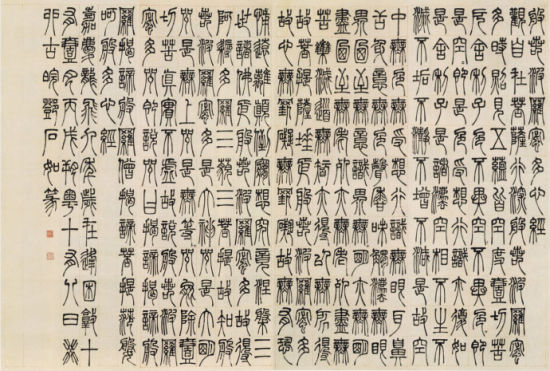 般若波羅蜜多心經
觀自在菩薩行深般若波羅蜜
多時照見五蘊皆空度壹切苦
厄舍利子色不異空空不異色色即
是空空即是色受想行識亦復如
是舍利子是諸法空相不生不
滅不垢不淨不增不減是故空
中無色無受想行識無眼耳鼻
舌身意無色聲香味觸法無眼
界乃至無意識界無無明亦無無明
盡乃至無老死亦無老死盡無
苦集滅道無智亦無得以無所得
故菩提薩埵依般若波羅蜜多
故心無罣礙無罣礙故無有恐
怖遠離顛倒夢想究竟涅槃三
世諸佛依般若波羅蜜多故得
阿耨多羅三藐三菩提故知
般若波羅蜜多是大神咒是大明
咒是無上咒是無等等咒能除壹
切苦真實不虛故說般若波羅
蜜多咒即說咒曰揭諦揭諦般
羅揭諦般羅僧揭諦菩提薩婆
訶般若多心經
嘉慶龍飛九年歲在閼逢困敦十
有壹月丙戌朔粵十有八日癸
卯古皖鄧石如篆